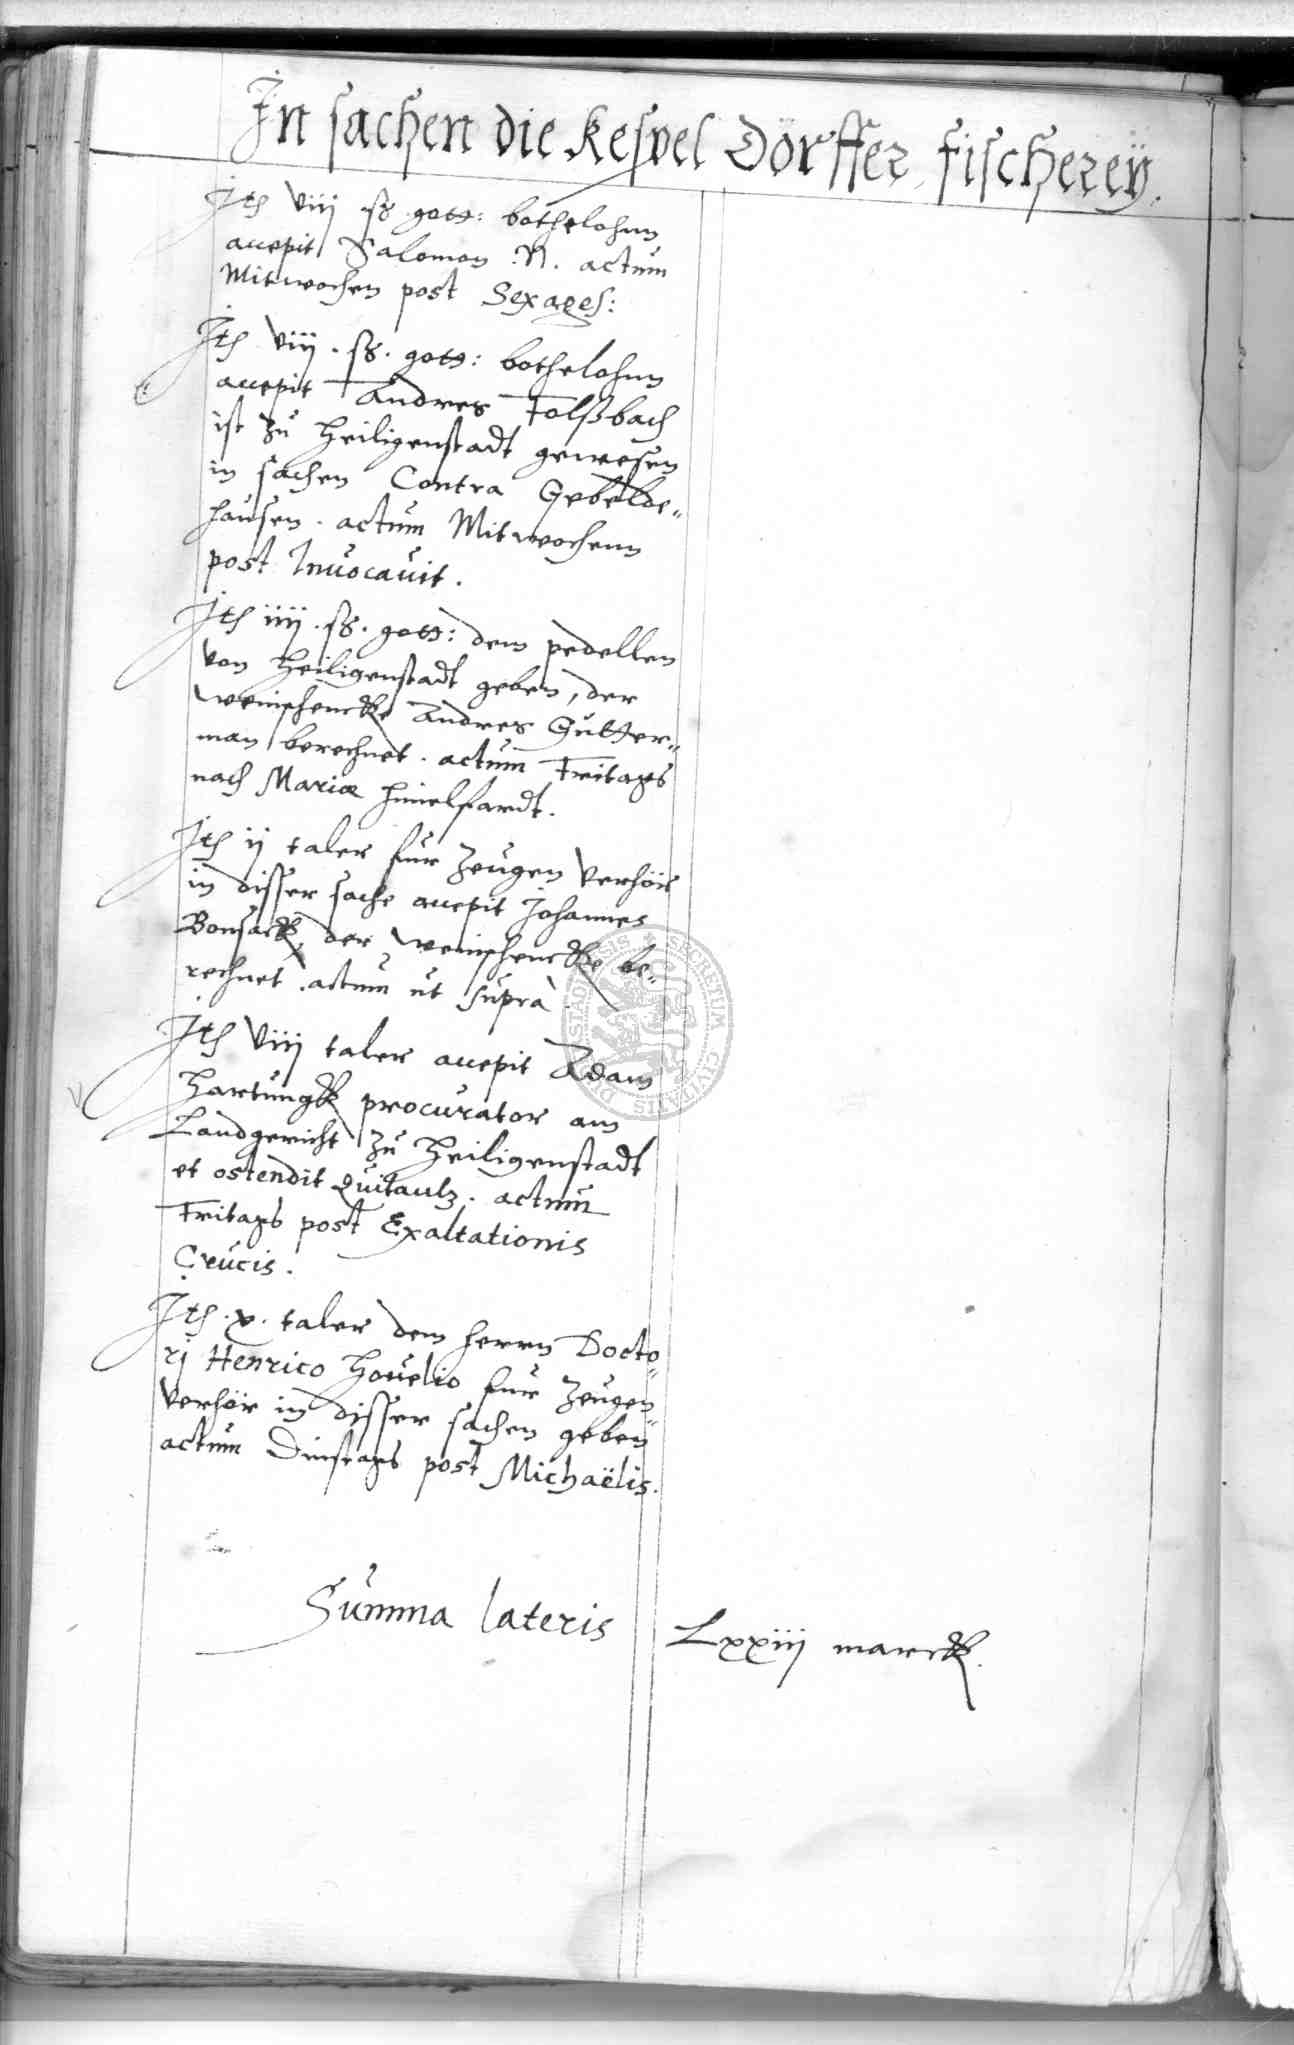 In sachen die Kespel Dörffer fischereÿ.
Ith viij ß gott: bothelohnn
accepit Salomon N. actum
Mitwochen post Sexages:
Ith viij . ß . gott: bothelohnn
accepit Andres Folßbach
ist zu Heiligenstadt gewesen
in sachen Contra Gebelde=
hausen . actum Mitwochenn
post Invocavit .
Ith iiij . ß . gott: dem pedellen
von Heiligenstadt geben, der
weinschencke Andres Gutter=
man berechnet . actum Fritags
nach Mariæ himelfardt .
Ith ij taler fur Zeugen verhör
in disser sache accepit Johannes
Bonsack, der weinschencke be=
rechnet . actum ut supra .
Ith viij taler accepit Adam
Hartungk procurator am
Landgericht zu Heiligenstadt
et ostendit Quitantz . actum
Fritags post Exaltationis
Crucis .
Ith . x . taler dem herrn Docto=
rj Henrico Hovelio fur Zeugen=
verhör in disser sachen geben
actum Dinstags post Michaëlis .
Summa lateris Lxxiij marck .
SECRETUM CIVITATIS DUDERSTADIENSIS